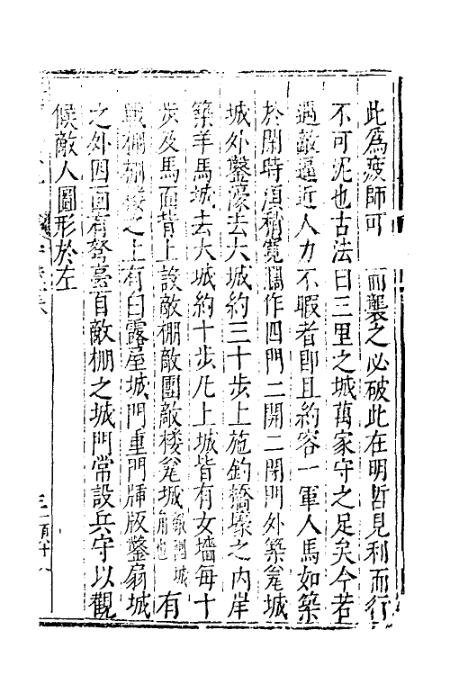 此爲疲師可　而襲之必破此在明哲見利而行
不可泥也古法曰三里之城萬家守之足矣今若
遇敵逼近人力不暇者即且約容一軍人馬如築
於閑時須稍寛闊作四門二開二閉門外築瓮城
城外鑿濠去大城約三十步上施釣橋壕之内岸
築羊馬城去大城約十步凡上城皆有女墻每十
步及馬面皆上設敵棚敵團敵楼瓮城 有
戰棚棚楼之上有白露屋城門重門牐版鑿扇城
之外四面有弩臺自敵棚之城門常設兵守以觀
候敵人圖形於左